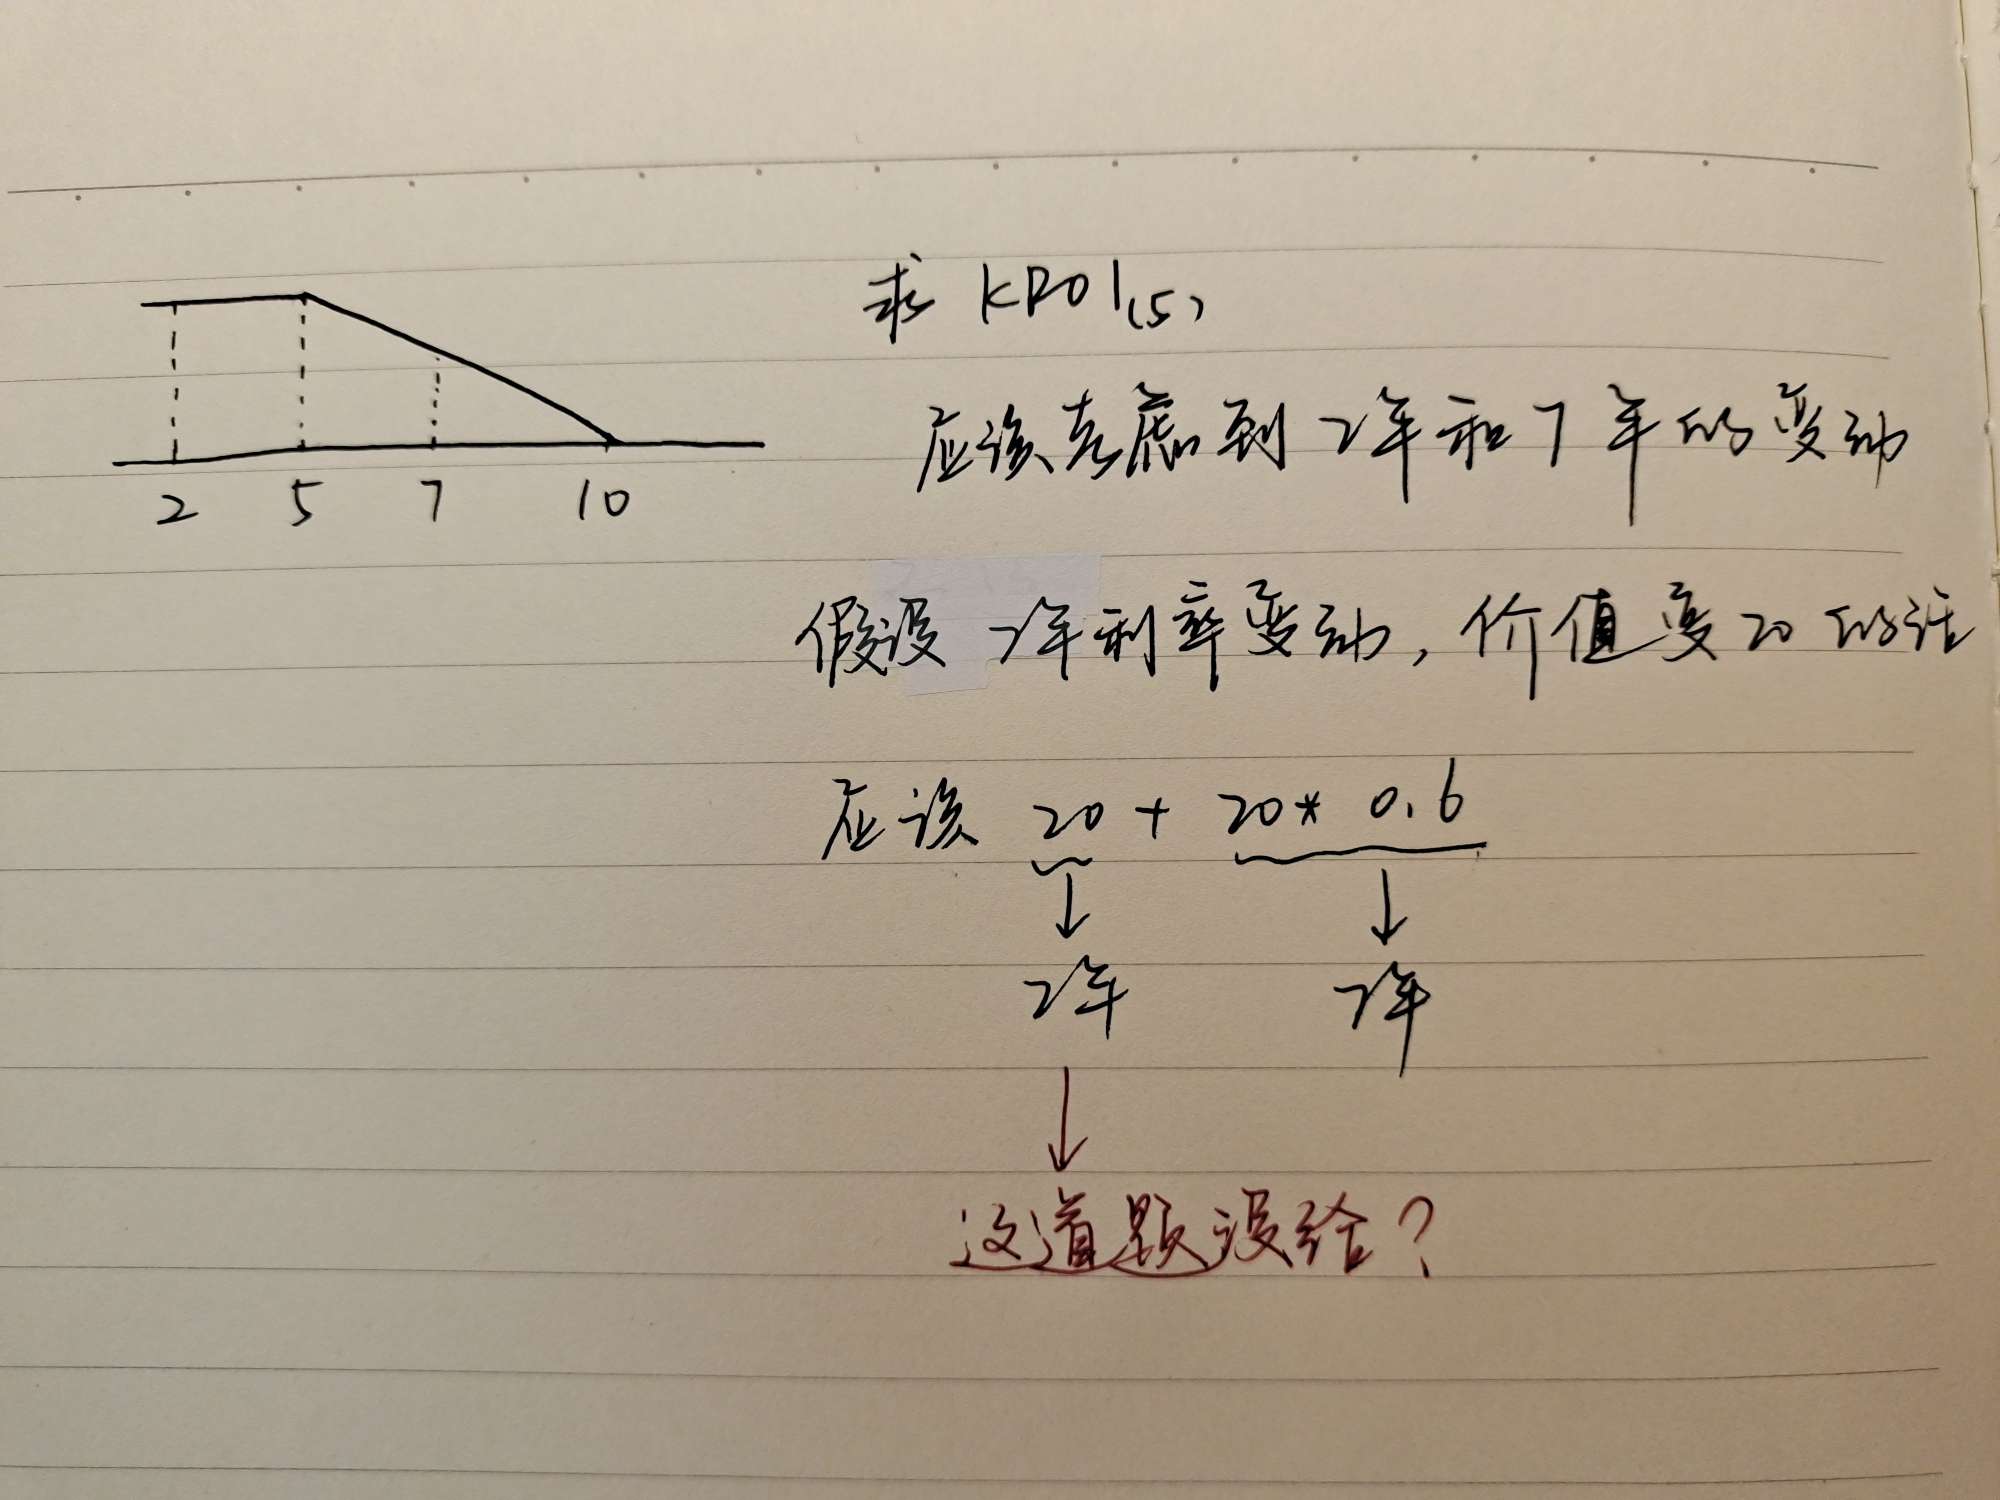 求 KR01(5)
应该考虑到 2年和7年的变动
2 5 7 10
假设 2年利率变动，价值变20的话
应该 20 + 20* 0.6
2年 7年
这道题没给？